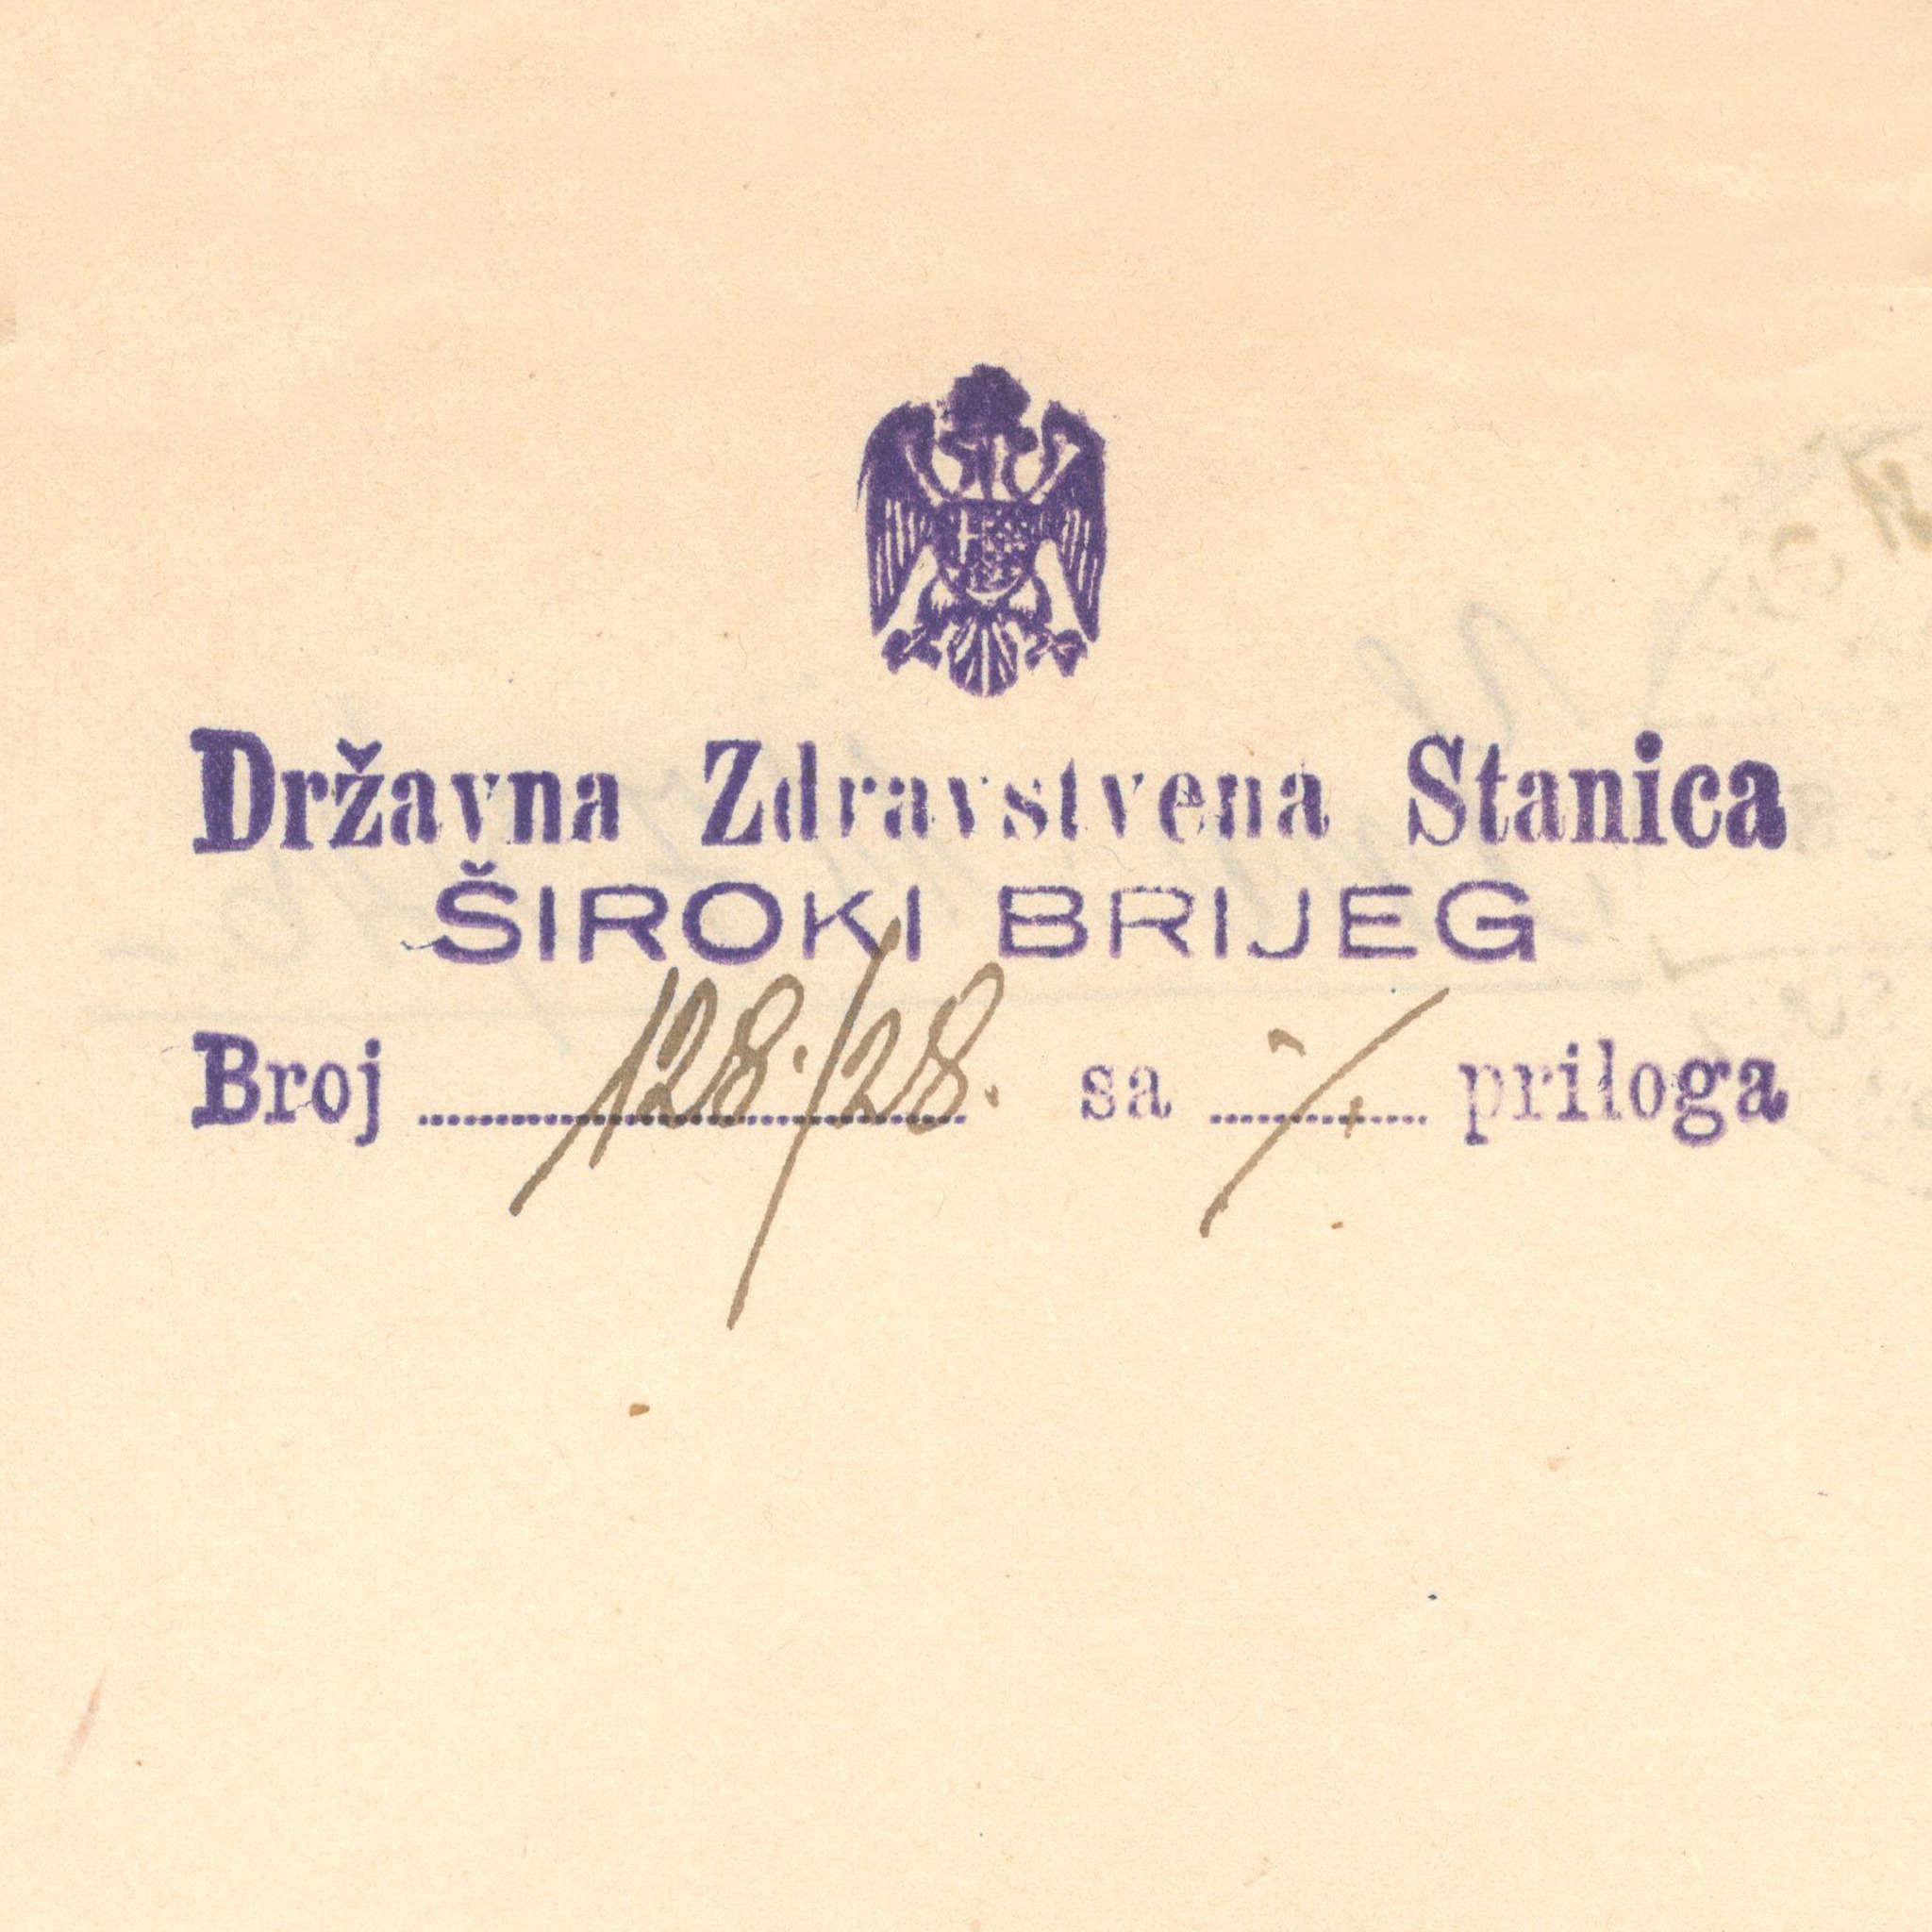 Državna Zdravstvena Stanica
ŠIROKI BRIJEG
Broj 128./28. sa ·/. priloga